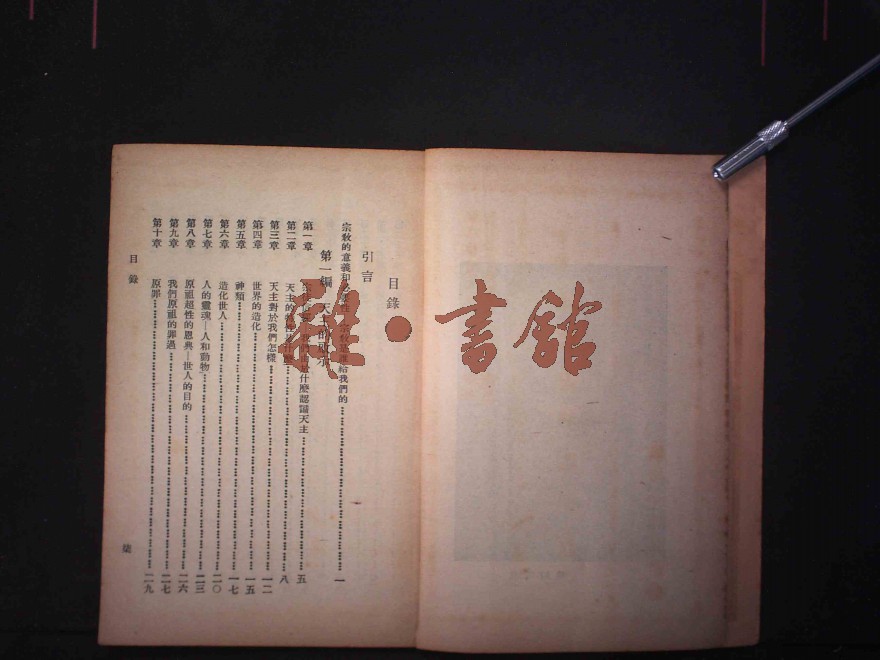 目錄
引言
宗教的意義和 給我們的 一
第一編 天主的
第一章 什麼認識天主 五
第二章 天主的 什麼 八
第三章 天主對於我們怎樣 一二
第四章 世界的造化 一五
第五章 神類 一七
第六章 造化世人 二〇
第七章 人的靈魂—人和動物 二三
第八章 原祖超性的恩典—世人的目的 二六
第九章 我們原祖的罪過 二七
第十章 原罪 二九
目錄
書館